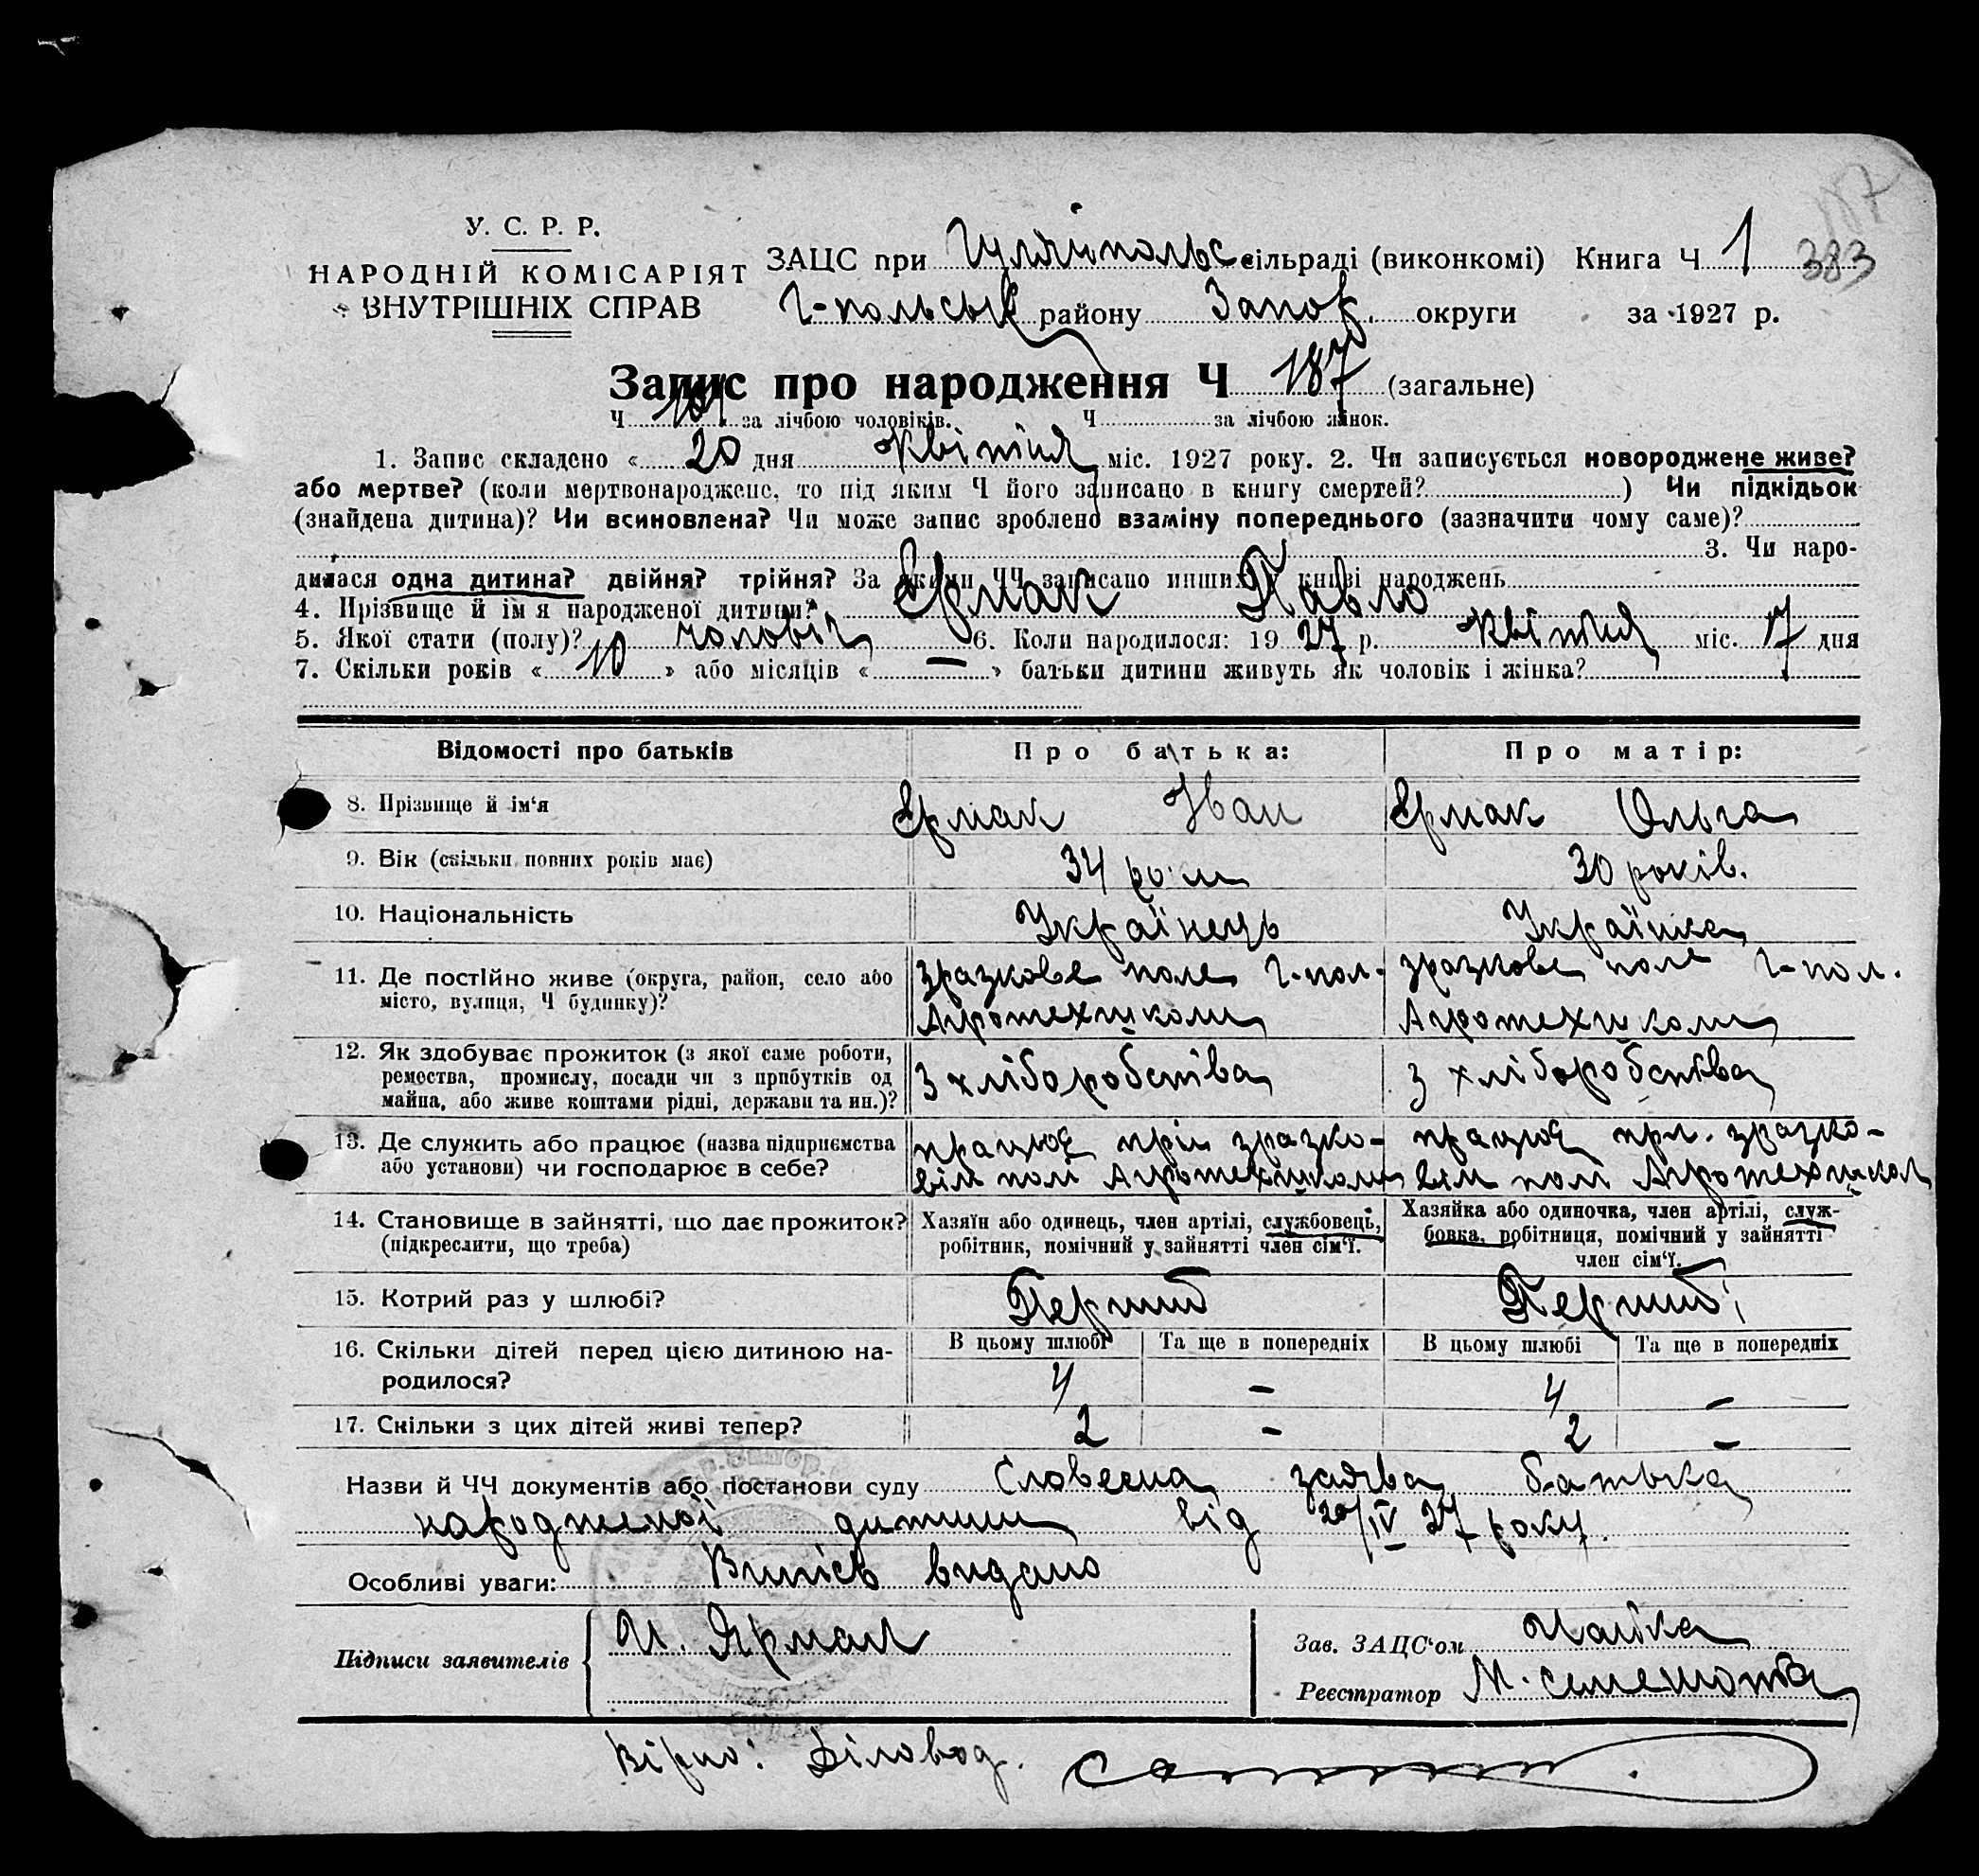 187
У. С. Р. Р.
НАРОДНІЙ КОМІСАРІЯТ
ВНУТРІШНІХ СПРАВ
ЗАЦС при Гуляйпольс сільраді (виконкомі) Книга Ч 1 383
Г-польськ району Запор. округи за 1927 р.
Запис про народження Ч 187 (загальне)
Ч 101 за лічбою чоловіків. Ч за лічбою жінок.
1. Запис складено « 20 дня квітня міс. 1927 року. 2. Чи записується новороджене живе?
або мертве? (коли мертвонароджене, то під яким Ч його записано в книгу смертей? ) Чи підкідьок
(знайдена дитина)? Чи всиновлена? Чи може запис зроблено взаміну попереднього (зазначити чому саме)?
3. Чи наро-
дилася одна дитина? двійня? трійня? За якими ЧЧ записано инших у книзі народжень
4. Прізвище й ім'я народженої дитини? Ермак Павло
5. Якої стати (полу)? чоловіч 6. Коли народилося: 1927 р. квітня міс. 17 дня
7. Скільки років « 10 » або місяців « — » батьки дитини живуть як чоловік і жінка?
Відомості про батьків Про батька: Про матір:
8. Прізвище й ім'я Ермак Іван Ермак Ольга
9. Вік (скільки повних років має) 34 30 років.
10. Національність Українець Українка
11. Де постійно живе (округа, район, село або місто, вулиця, Ч будинку)? зразкове поле Г-пол. Агротехшколи зразкове поле Г-пол. Агротехшколи
12. Як здобуває прожиток (з якої саме роботи, ремества, промислу, посади чи з прибутків од майна, або живе коштами рідні, держави та ин.)? З хліборобства З хліборобства
13. Де служить або працює (назва підприємства або установи) чи господарює в себе? працює при зразко-вім полі Агротехшколи працює при. зразко-вім полі Агротехшкол
14. Становище в зайнятті, що дає прожиток? (підкреслити, що треба) Хазяїн або одинець, член артілі, службовець, робітник, помічний у зайнятті член сім'ї. Хазяйка або одиночка, член артілі, служ-бовка, робітниця, помічний у зайнятті член сім'ї.
15. Котрий раз у шлюбі? Перший Перший
16. Скільки дітей перед цією дитиною на-родилося? В цьому шлюбі Та ще в попередніх В цьому шлюбі Та ще в попередніх
4 – 4 –
17. Скільки з цих дітей живі тепер? 2 – 2 –
Назви й ЧЧ документів або постанови суду Словесна заява батька
народженої дитини від 20/IV 27 року.
Особливі уваги: Випісь видано
Підписи заявителів И. Ярмак
Зав. ЗАЦС'ом
Реєстратор М.
Вірно: Діловод.